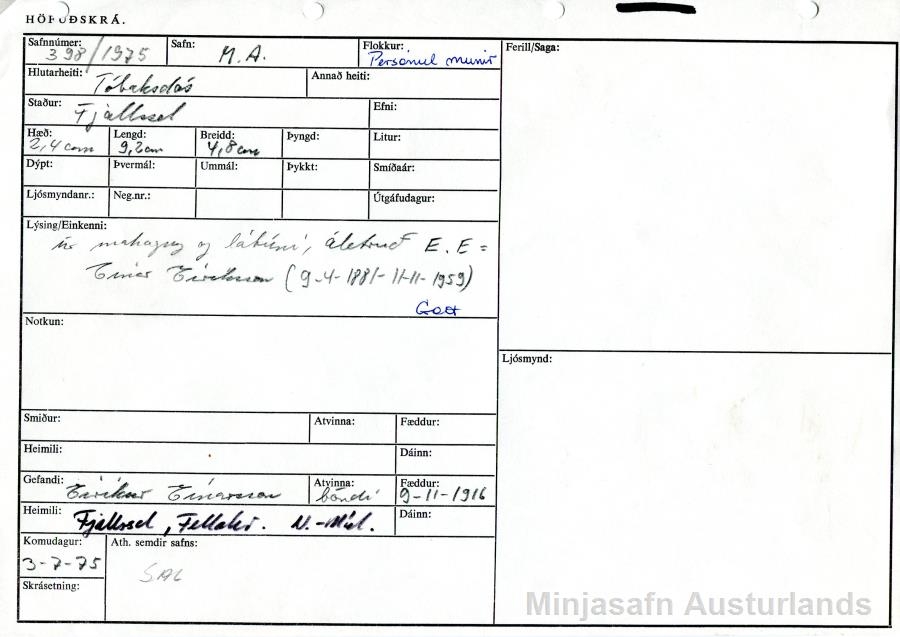 HÖFUÐSKRÁ.
Safnnúmer: 398/1975
Safn: M.A.
Flokkur: Persónul munir
Hlutarheiti: Tóbaksdós
Annað heiti:
Staður: Fjallssel
Efni:
Hæð: 2,4 cm
Lengd: 9,2 cm
Breidd: 4,8 cm
Þyngd:
Litur:
Dýpt:
Þvermál:
Ummál:
Þykkt:
Smíðaár:
Ljósmyndanr.:
Neg.nr.:
Útgáfudagur:
Lýsing/Einkenni:
úr mahogny og látúni, áletruð E.E =
Einar Eiríksson (9-4-1881-11-11-1959)
Gott
Notkun:
Smiður:
Atvinna:
Fæddur:
Heimili:
Dáinn:
Gefandi: Eiríkur Einarsson
Atvinna: bóndi
Fæddur: 9-11-1916
Heimili: Fjallssel, Fellahr. N.-Múl.
Dáinn:
Komudagur: 3-7-75
Ath. semdir safns:
SAL
Skrásetning:
Ferill/Saga:
Ljósmynd:
Minjasafn Austurlands